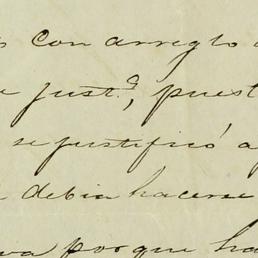 con arreglo
just.ª, puest
se justificó a
debia hacerse
porque ha